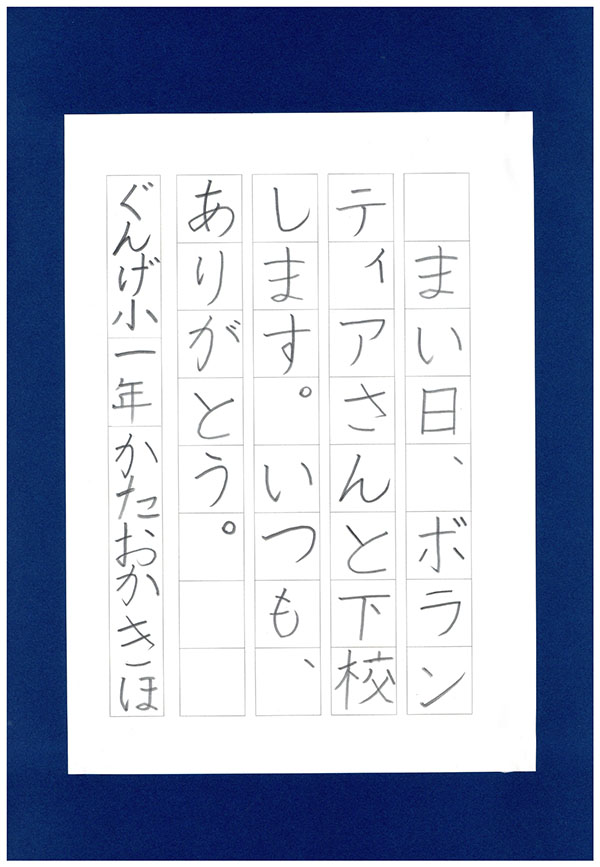 まい日、ボラン
ティアさんと下校
します。いつも、
ありがとう。
ぐんげ小一年かたおかきほ